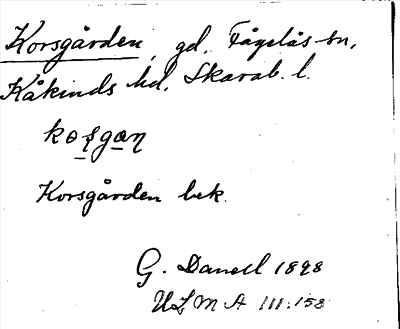 Korsgården, gd, Fågelås sn,
Kåkinds hd, Skarab. l.
kosgan
Korsgården bek.
G. Danell 1898
ULMA 111:153